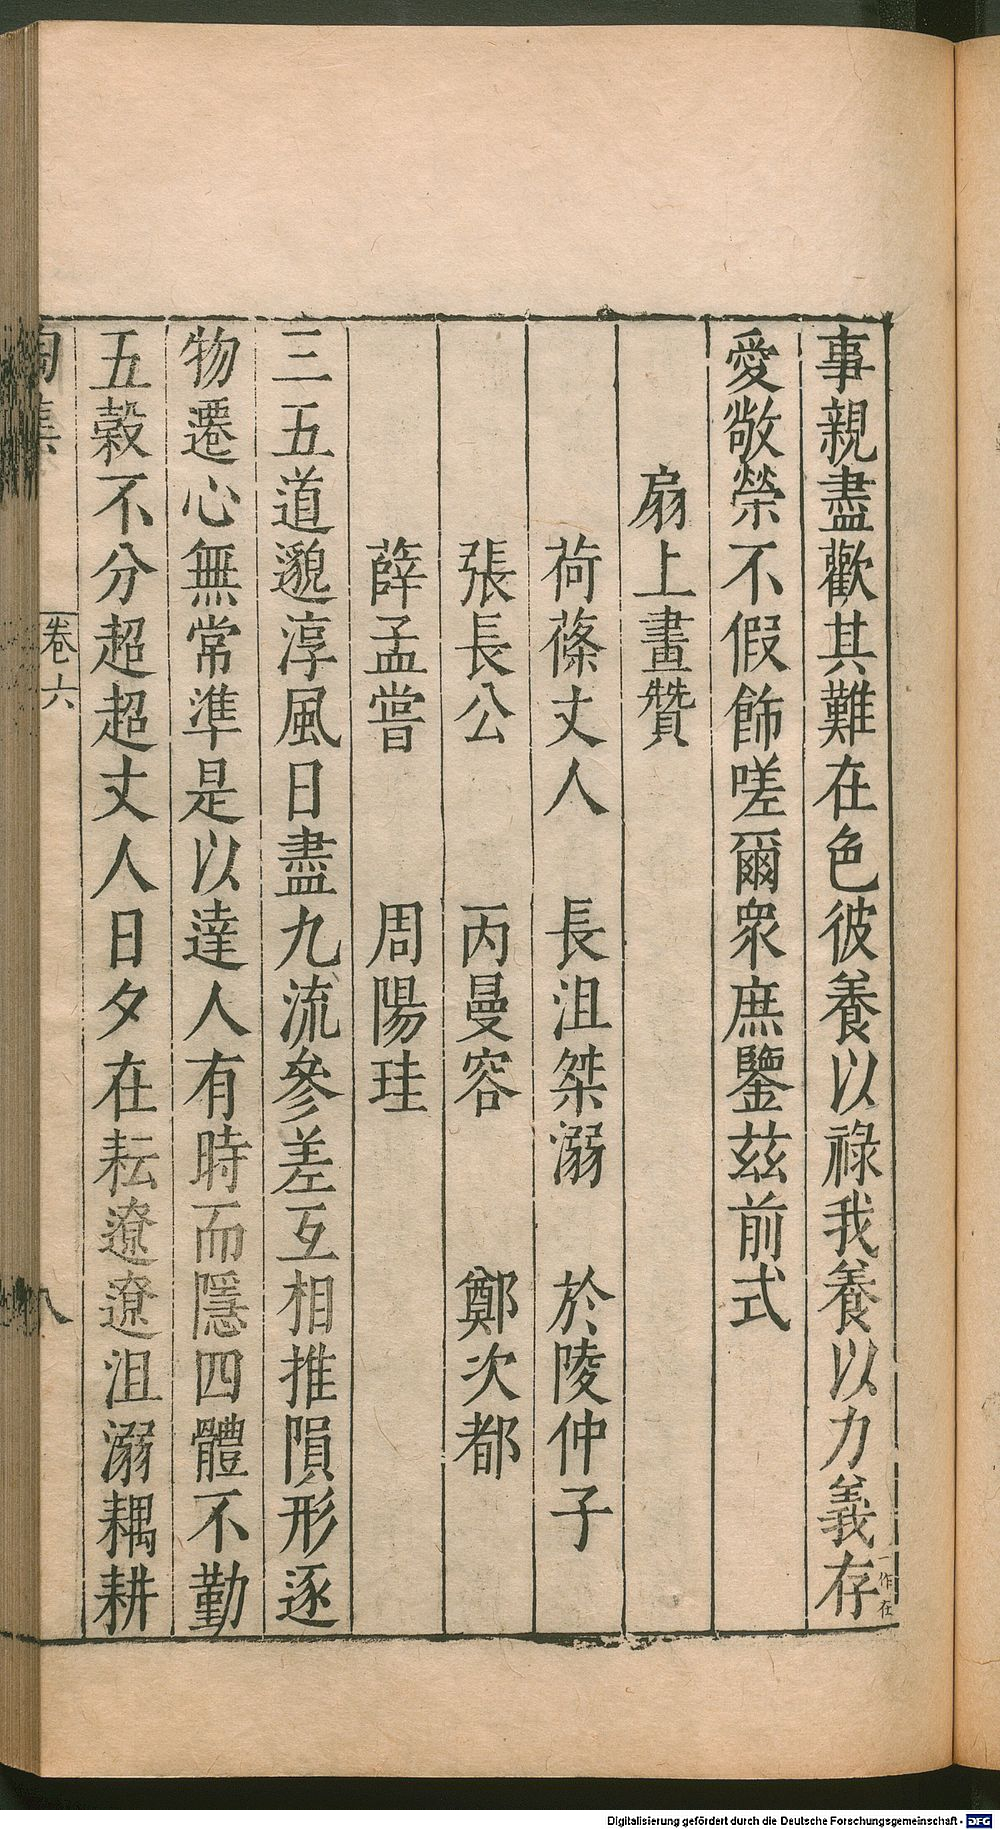 事親盡歡其難在色彼養以祿我養以力義存一作在
愛敬榮不假飾嗟爾衆庶鑒茲前式
扇上畫贊
荷蓧丈人 長沮桀溺 於陵仲子
張長公 丙曼容 鄭次都
薛孟嘗 周陽珪
三五道邈淳風日盡九流參差互相推隕形逐
物遷心無常準是以達人有時而隱四體不勤
五穀不分超超丈人日夕在耘遼遼沮溺耦耕
陶集 卷六 八
Digitalisierung gefördert durch die Deutsche Forschungsgemeinschaft - DFG